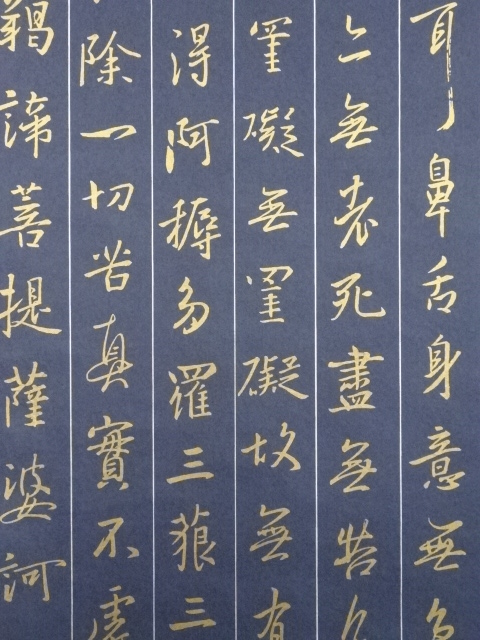 耳鼻舌身意無色
亦無老死盡無苦
罣礙無罣礙故無有
得阿耨多羅三藐三
除一切苦真實不虛
諦菩提薩婆訶